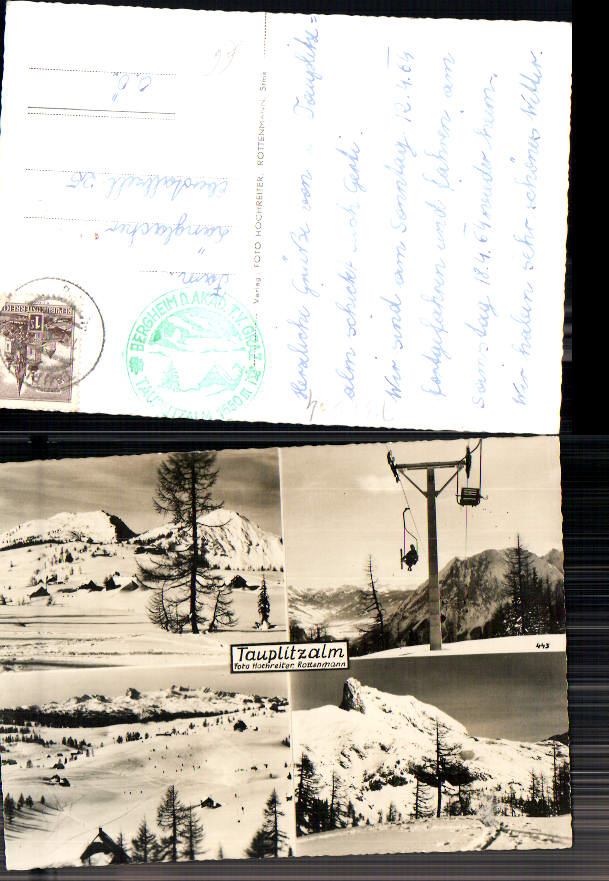 Herzliche Grüße von Tauplitz=
alm schickt euch Gerti.
Wir sind am Sonntag 12.4.64
fortgefahren und fahren am
Samstag 18.4.64 wieder heim.
Wir haben sehr schönes Wetter.
Verlag: FOTO HOCHREITER, ROTTENMANN, Stmk
Fam.
Eberstallzell 25
O.Ö.
BERGHEIM D. AKAD. T.V. GRAZ
TAUPLITZALM 1650 M
Tauplitzalm
Foto Hochreiter Rottenmann
443